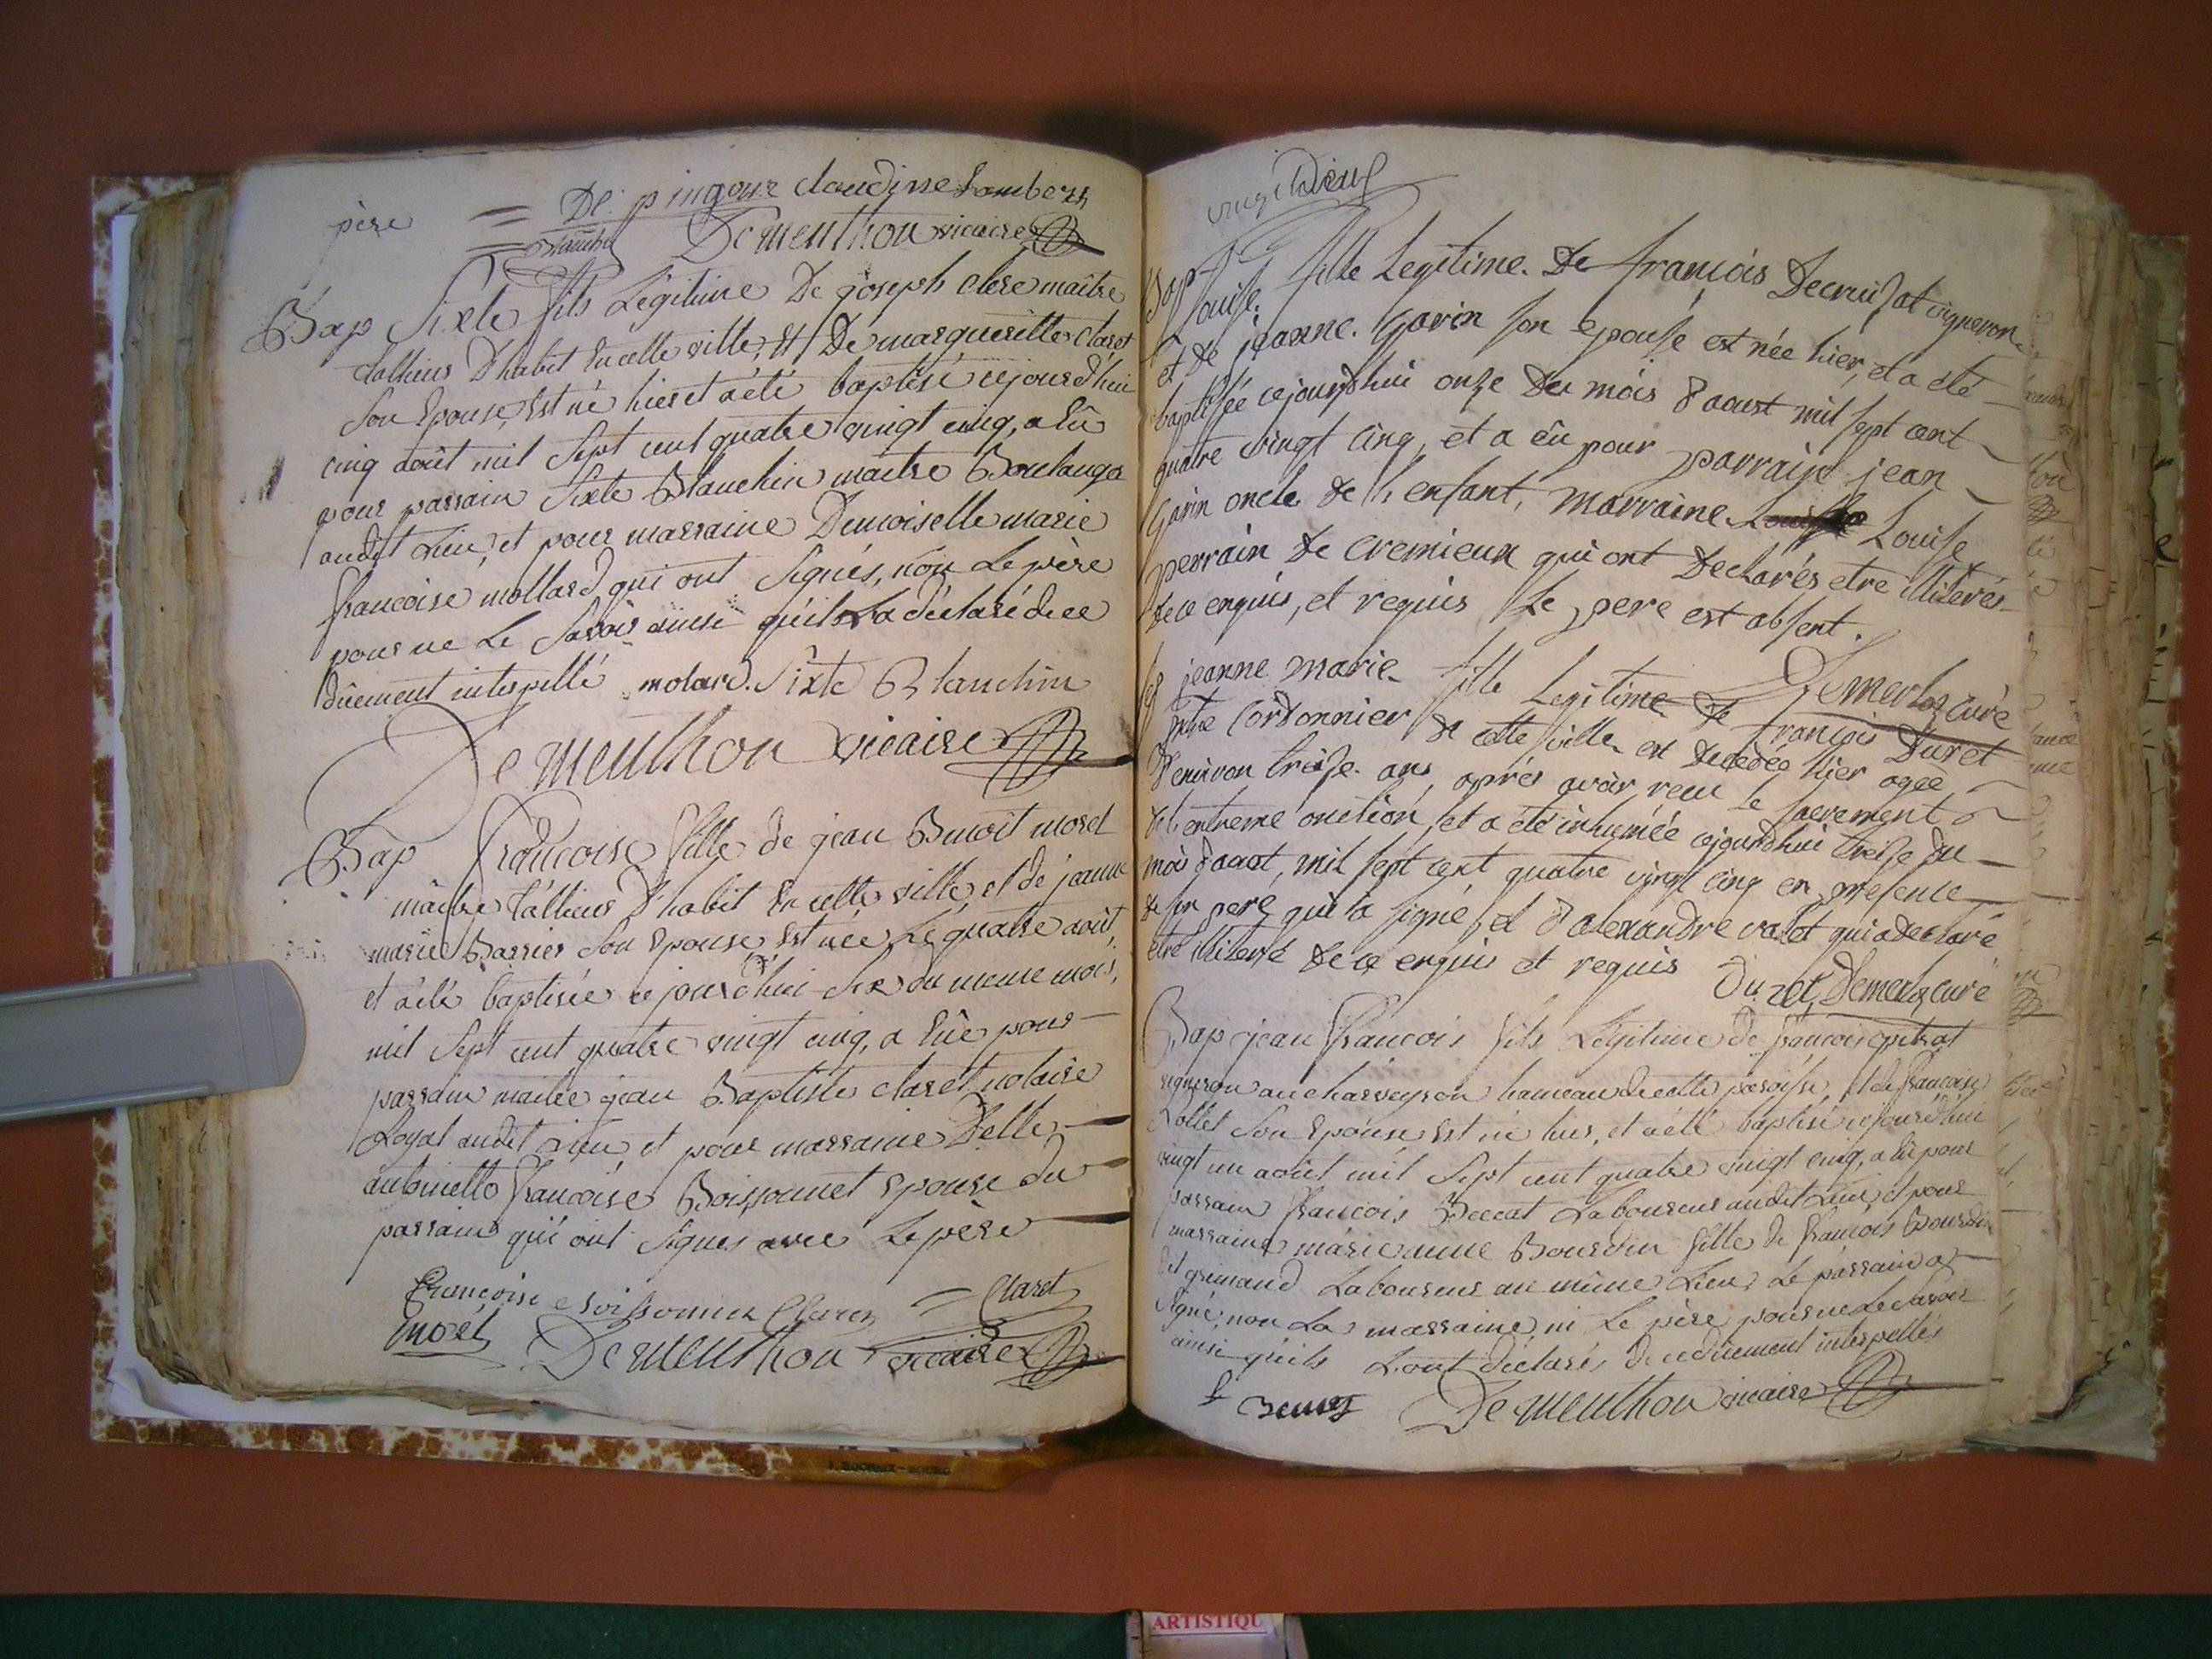 père = De pingon Claudine Lambert
= Blanchet De Menthon vicaire
Bap Sixte fils Légitime De joseph clere maître
tallieur D'habit En cette ville, Et De margueritte Claret
Son Epouse, Est né hier et a été baptisé cejourd'hui
cinq août mil Sept cent quatre vingt cinq, a Eû
pour parrain Sixte Blanchin maitre Boulanger
audit Lieu, et pour marraine Demoiselle marie
francoise mollard qui ont Signés, non Le père
pour ne Le Savoir ainsi qu'il La déclaré de ce
dûement interpellé molard. Sixte Blanchin
De Menthon vicaire
Bap francoise fille de jean Benoît morel
maitre tallieur D'habit En cette ville, et de jeanne
marie Barrier Son Epouse, Est née Le quatre août,
et a été baptisée ce jourd'hui Six du meme mois,
mil Sept cent quatre vingt cinq, a Eûe pour
parrain maitre jean Baptiste claret notaire
Royal audit Lieu, et pour marraine Delle
antoinette francoise Boissonnet Epouse du
parrain qui ont Signés avec Le père
Françoise Boissonnet Claret = Claret
morel De Menthon vicaire
vingt deux
Bap Louise fille Legitime De françois Decruisat vigneron
et De jeanne Garin son epouse est née hier, et a été
baptisée cejourdhui onze Du mois d'aoust mil sept cent
quatre vingt cinq, et a eû pour parrain jean
Garin oncle de l'enfant, marraine Louise Louise
perrain de cremieux qui ont Declarés etre illiterés
de ce enquis, et requis le pere est absent.
Demerloz curé
jeanne marie fille Legitime de françois Duret
mtre Cordonnier de cette ville est decedée hier agée
d'environ treize ans, après avoir reçu le sacrement
de l'extreme onction, et a été inhumée cejourdhui treize du
mois d'aout, mil sept cent quatre vingt cinq en presence
de son pere qui a signé, et d'alexandre valet qui a declaré
etre illiteré de ce enquis et requis Duret Demerloz curé
Bap jean francois fils Légitime de francois pitrat
vigneron au charveyron hameau de cette paroisse, et de francoise
Lollet Son Epouse Est né hier, et a été baptisé cejourd'hui
vingt un août mil Sept cent quatre vingt cinq, a Eû pour
parrain francois Beccat Laboureur audit Lieu, et pour
marraine marie anne Bourdin fille de francois Bourdin
dit grimaud Laboureur au même Lieu, Le parrain a
Signé, non La marraine, ni Le père pour ne Le Savoir
ainsi qu'ils L'ont déclarés de ce dûement interpellés
De Menthon vicaire
ARTISTIQU